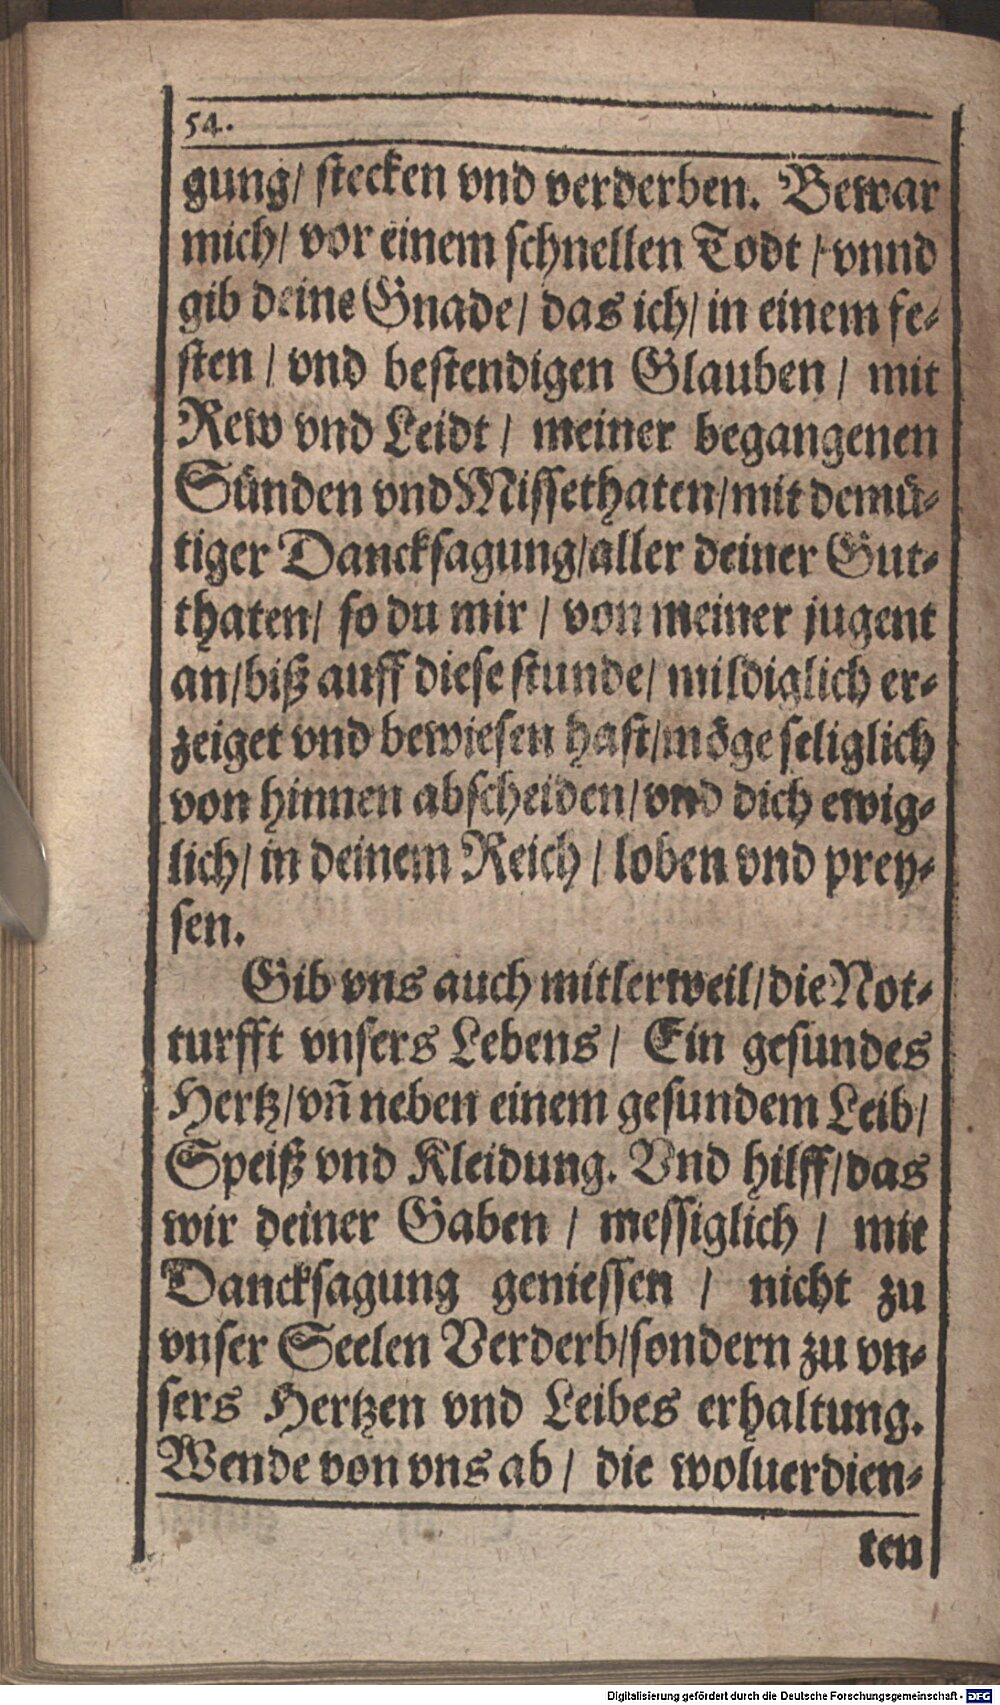 54.
gung/ stecken vnd verderben. Bewar
mich/ vor einem schnellen Todt / vnnd
gib deine Gnade/ das ich/ in einem fe-
sten / vnd bestendigen Glauben / mit
Rew vnd Leidt / meiner begangenen
Sünden vnd Missethaten/mit demü-
tiger Dancksagung/aller deiner Gut-
thaten/ so du mir / von meiner jugent
an/biß auff diese stunde/ mildiglich er-
zeiget vnd bewiesen hast/möge seliglich
von hinnen abscheiden/vnd dich ewig-
lich/ in deinem Reich / loben vnd prey-
sen.
Gib vns auch mitlerweil/die Not-
turfft vnsers Lebens / Ein gesundes
Hertz/vñ neben einem gesundem Leib/
Speiß vnd Kleidung. Vnd hilff/das
wir deiner Gaben / messiglich / mit
Dancksagung geniessen / nicht zu
vnser Seelen Verderb/sondern zu vn-
sers Hertzen vnd Leibes erhaltung.
Wende von vns ab / die woluerdien-
ten
Digitalisierung gefördert durch die Deutsche Forschungsgemeinschaft - DFG